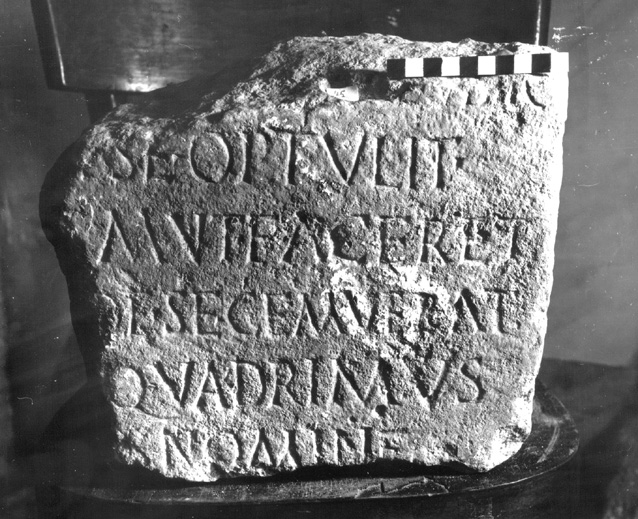 SEOPTVLIT
MVTFACERET
DESECEMVERAT
QVADRIMVS
NOMINE